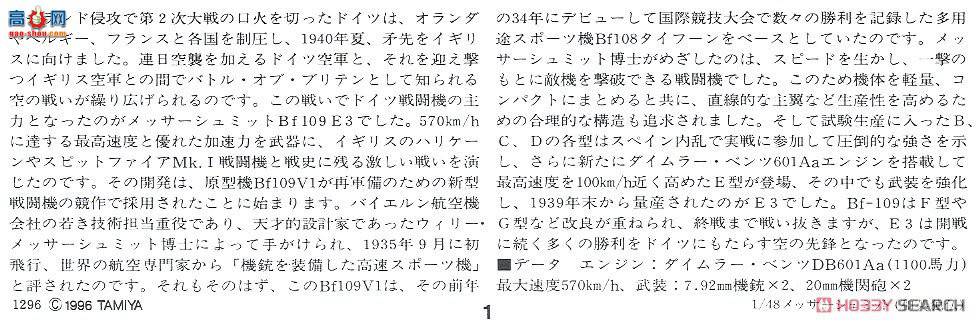 ンド侵攻で第２次大戦の口火を切ったドイツは、オランダ
やベルギー、フランスと各国を制圧し、1940年夏、矛先をイギリ
スに向けました。連日空襲を加えるドイツ空軍と、それを迎え撃
つイギリス空軍との間でバトル・オブ・ブリテンとして知られる
空の戦いが繰り広げられるのです。この戦いでドイツ戦闘機の主
力となったのがメッサーシュミットBf109 E3でした。570km/h
に達する最高速度と優れた加速力を武器に、イギリスのハリケー
ンやスピットファイアMk.Ⅰ戦闘機と戦史に残る激しい戦いを演
じたのです。その開発は、原型機Bf109V1が再軍備のための新型
戦闘機の競作で採用されたことに始まります。バイエルン航空機
会社の若き技術担当重役であり、天才的設計家であったウィリー・
メッサーシュミット博士によって手がけられ、1935年９月に初
飛行、世界の航空専門家から「機銃を装備した高速スポーツ機」
と評されたのです。それもそのはず、このBf109V1は、その前年
の34年にデビューして国際競技大会で数々の勝利を記録した多用
途スポーツ機Bf108タイフーンをベースとしていたのです。メッ
サーシュミット博士がめざしたのは、スピードを生かし、一撃の
もとに敵機を撃破できる戦闘機でした。このため機体を軽量、コ
ンパクトにまとめると共に、直線的な主翼など生産性を高めるた
めの合理的な構造も追求されました。そして試験生産に入ったＢ、
Ｃ、Ｄの各型はスペイン内乱で実戦に参加して圧倒的な強さを示
し、さらに新たにダイムラー・ベンツ601Aaエンジンを搭載して
最高速度を100km/h近く高めたＥ型が登場、その中でも武装を強化
し、1939年末から量産されたのがＥ３でした。Bf-109はＦ型や
Ｇ型など改良が重ねられ、終戦まで戦い抜きますが、Ｅ３は開戦
に続く多くの勝利をドイツにもたらす空の先鋒となったのです。
■データ　エンジン：ダイムラー・ベンツDB601Aa(1100馬力)
最大速度570km/h、武装：7.92mm機銃×２、20mm機関砲×２
1296 ©1996 TAMIYA
1
1/48メッサー
HOBBY SEARCH